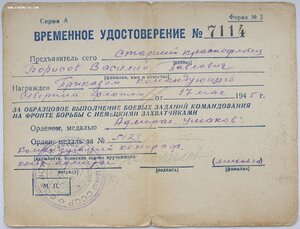 Серия А
Форма № 2
ВРЕМЕННОЕ УДОСТОВЕРЕНИЕ № 7114
Предъявитель сего Старший краснофлотец
Борисов Василий Павлович
(фамилия, имя и отчество)
Награжден Приказом Командующего
Северным Флотом от 17 мая 1945 г.
ЗА ОБРАЗЦОВОЕ ВЫПОЛНЕНИЕ БОЕВЫХ ЗАДАНИЙ КОМАНДОВАНИЯ
НА ФРОНТЕ БОРЬБЫ С НЕМЕЦКИМИ ЗАХВАТЧИКАМИ
Орденом, медалью Адмирал Ушаков
Орден, медаль за №
контр-адмирал
(фамилия)
М. П.